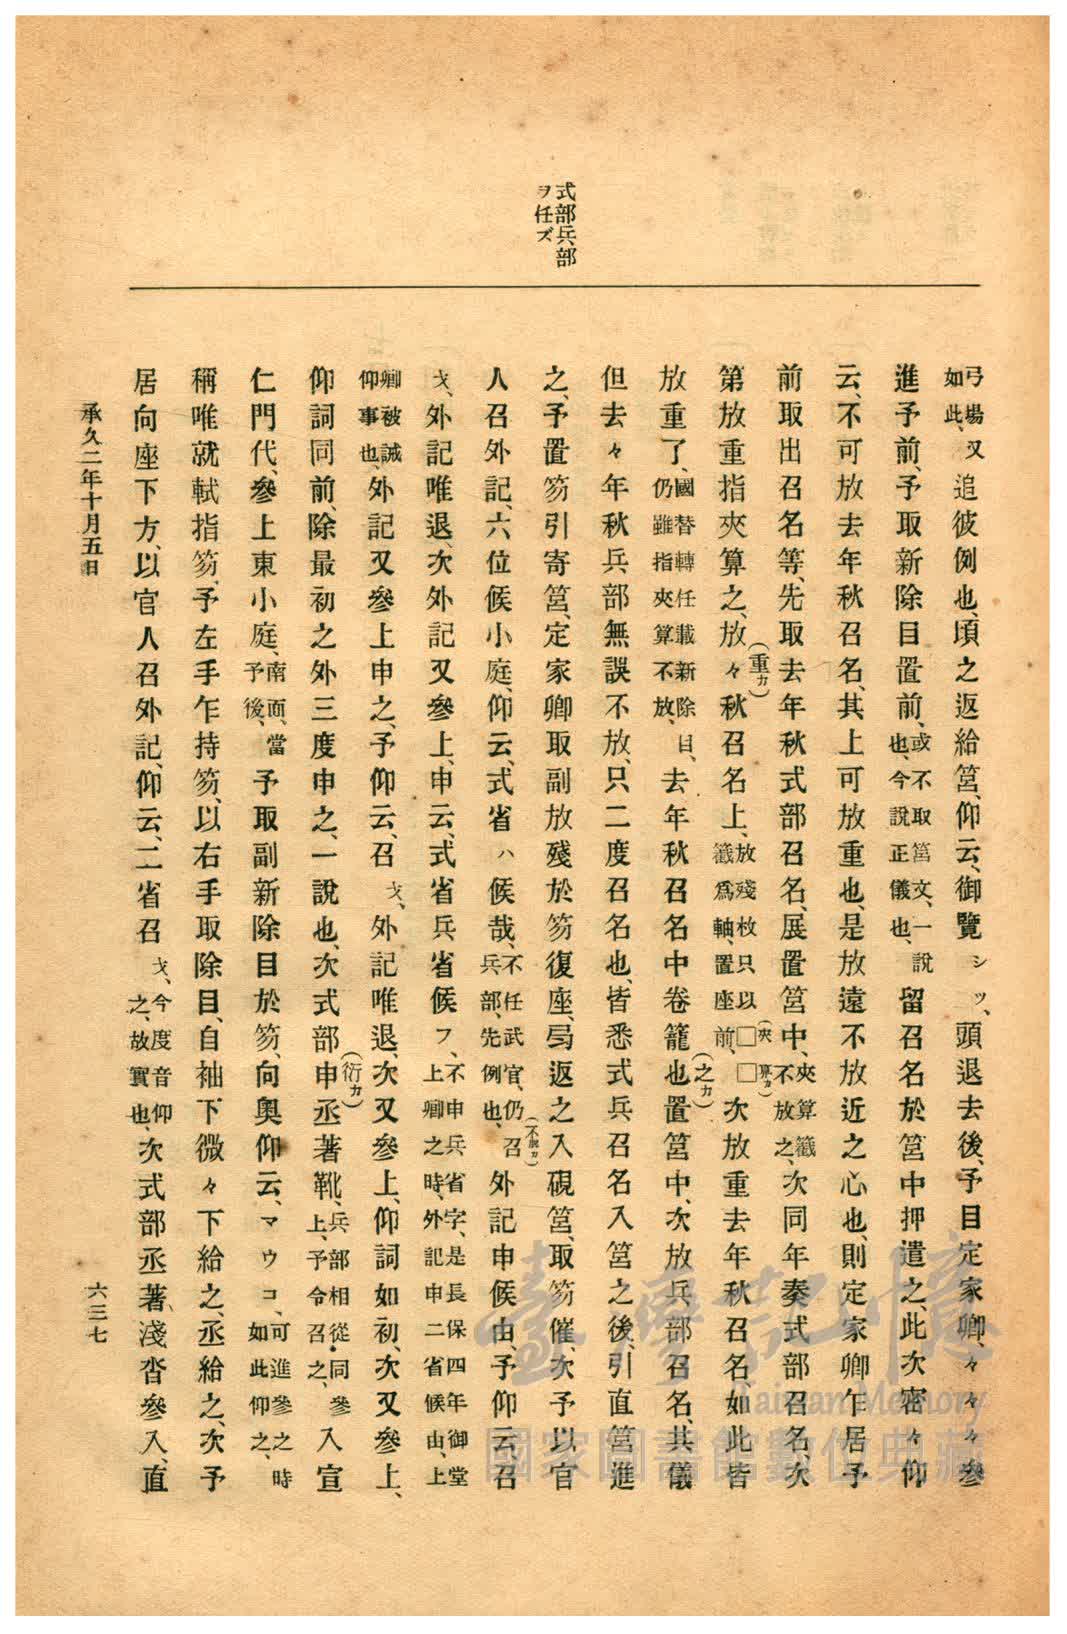 式部兵部
ヲ任ズ
弓場又如此、追彼例也、頃之返給筥、仰云、御覽シツ、頭退去後、予目定家卿、々々々參
進予前、予取新除目置前、或不取筥文、一說也、今說正儀也、留召名於筥中押遣之、此次密々仰
云、不可放去年秋召名、其上可放重也、是放遠不放近之心也、則定家卿乍居予
前取出召名等、先取去年秋式部召名、展置筥中、夾算籤不放之、次同年奏式部召名、次
第放重指夾算之、放々(重カ)秋召名上、放殘枚只以□□(夾算カ)籤爲軸、置座前、次放重去年秋召名、如此皆
放重了、國替轉任載新除目、仍雖指夾算不放、去年秋召名中卷籠也(之カ)置筥中、次放兵部召名、其儀
但去々年秋兵部無誤不放、只二度召名也、皆悉式兵召名入筥之後、引直筥進
之、予置笏引寄筥、定家卿取副放殘於笏復座、予返之入硯筥、取笏催、次予以官
人召外記、六位候小庭、仰云、式省ハ候哉、不任武官、仍召兵部、先例也、外記申候由、予仰云、召
戈、外記唯退、次外記又參上、申云、式省兵省候フ、不申兵省字、是長保四年御堂上卿之時、外記申二省候由、上
卿被誡仰事也、外記又參上申之、予仰云、召戈、外記唯退、次又參上、仰詞如初、次又參上、
仰詞同前、除最初之外三度申之、一說也、次式部申(衍カ)丞著靴、兵部相從同參上、予令召之、入宣
仁門代、參上東小庭、南面、當予後、予取副新除目於笏、向奧仰云、マウコ、可進參之時如此仰之、
稱唯就軾指笏、予左手乍持笏、以右手取除目、自袖下微々下給之、丞給之、次予
居向座下方、以官人召外記、仰云、二省召戈、今度音仰之、故實也、次式部丞著淺沓參入、直
承久二年十月五日
六三七
臺灣記憶
Taiwan Memory
國家圖書館數位典藏